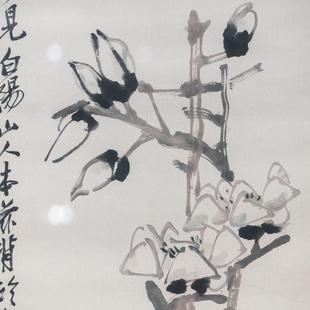 見白陽山人本背